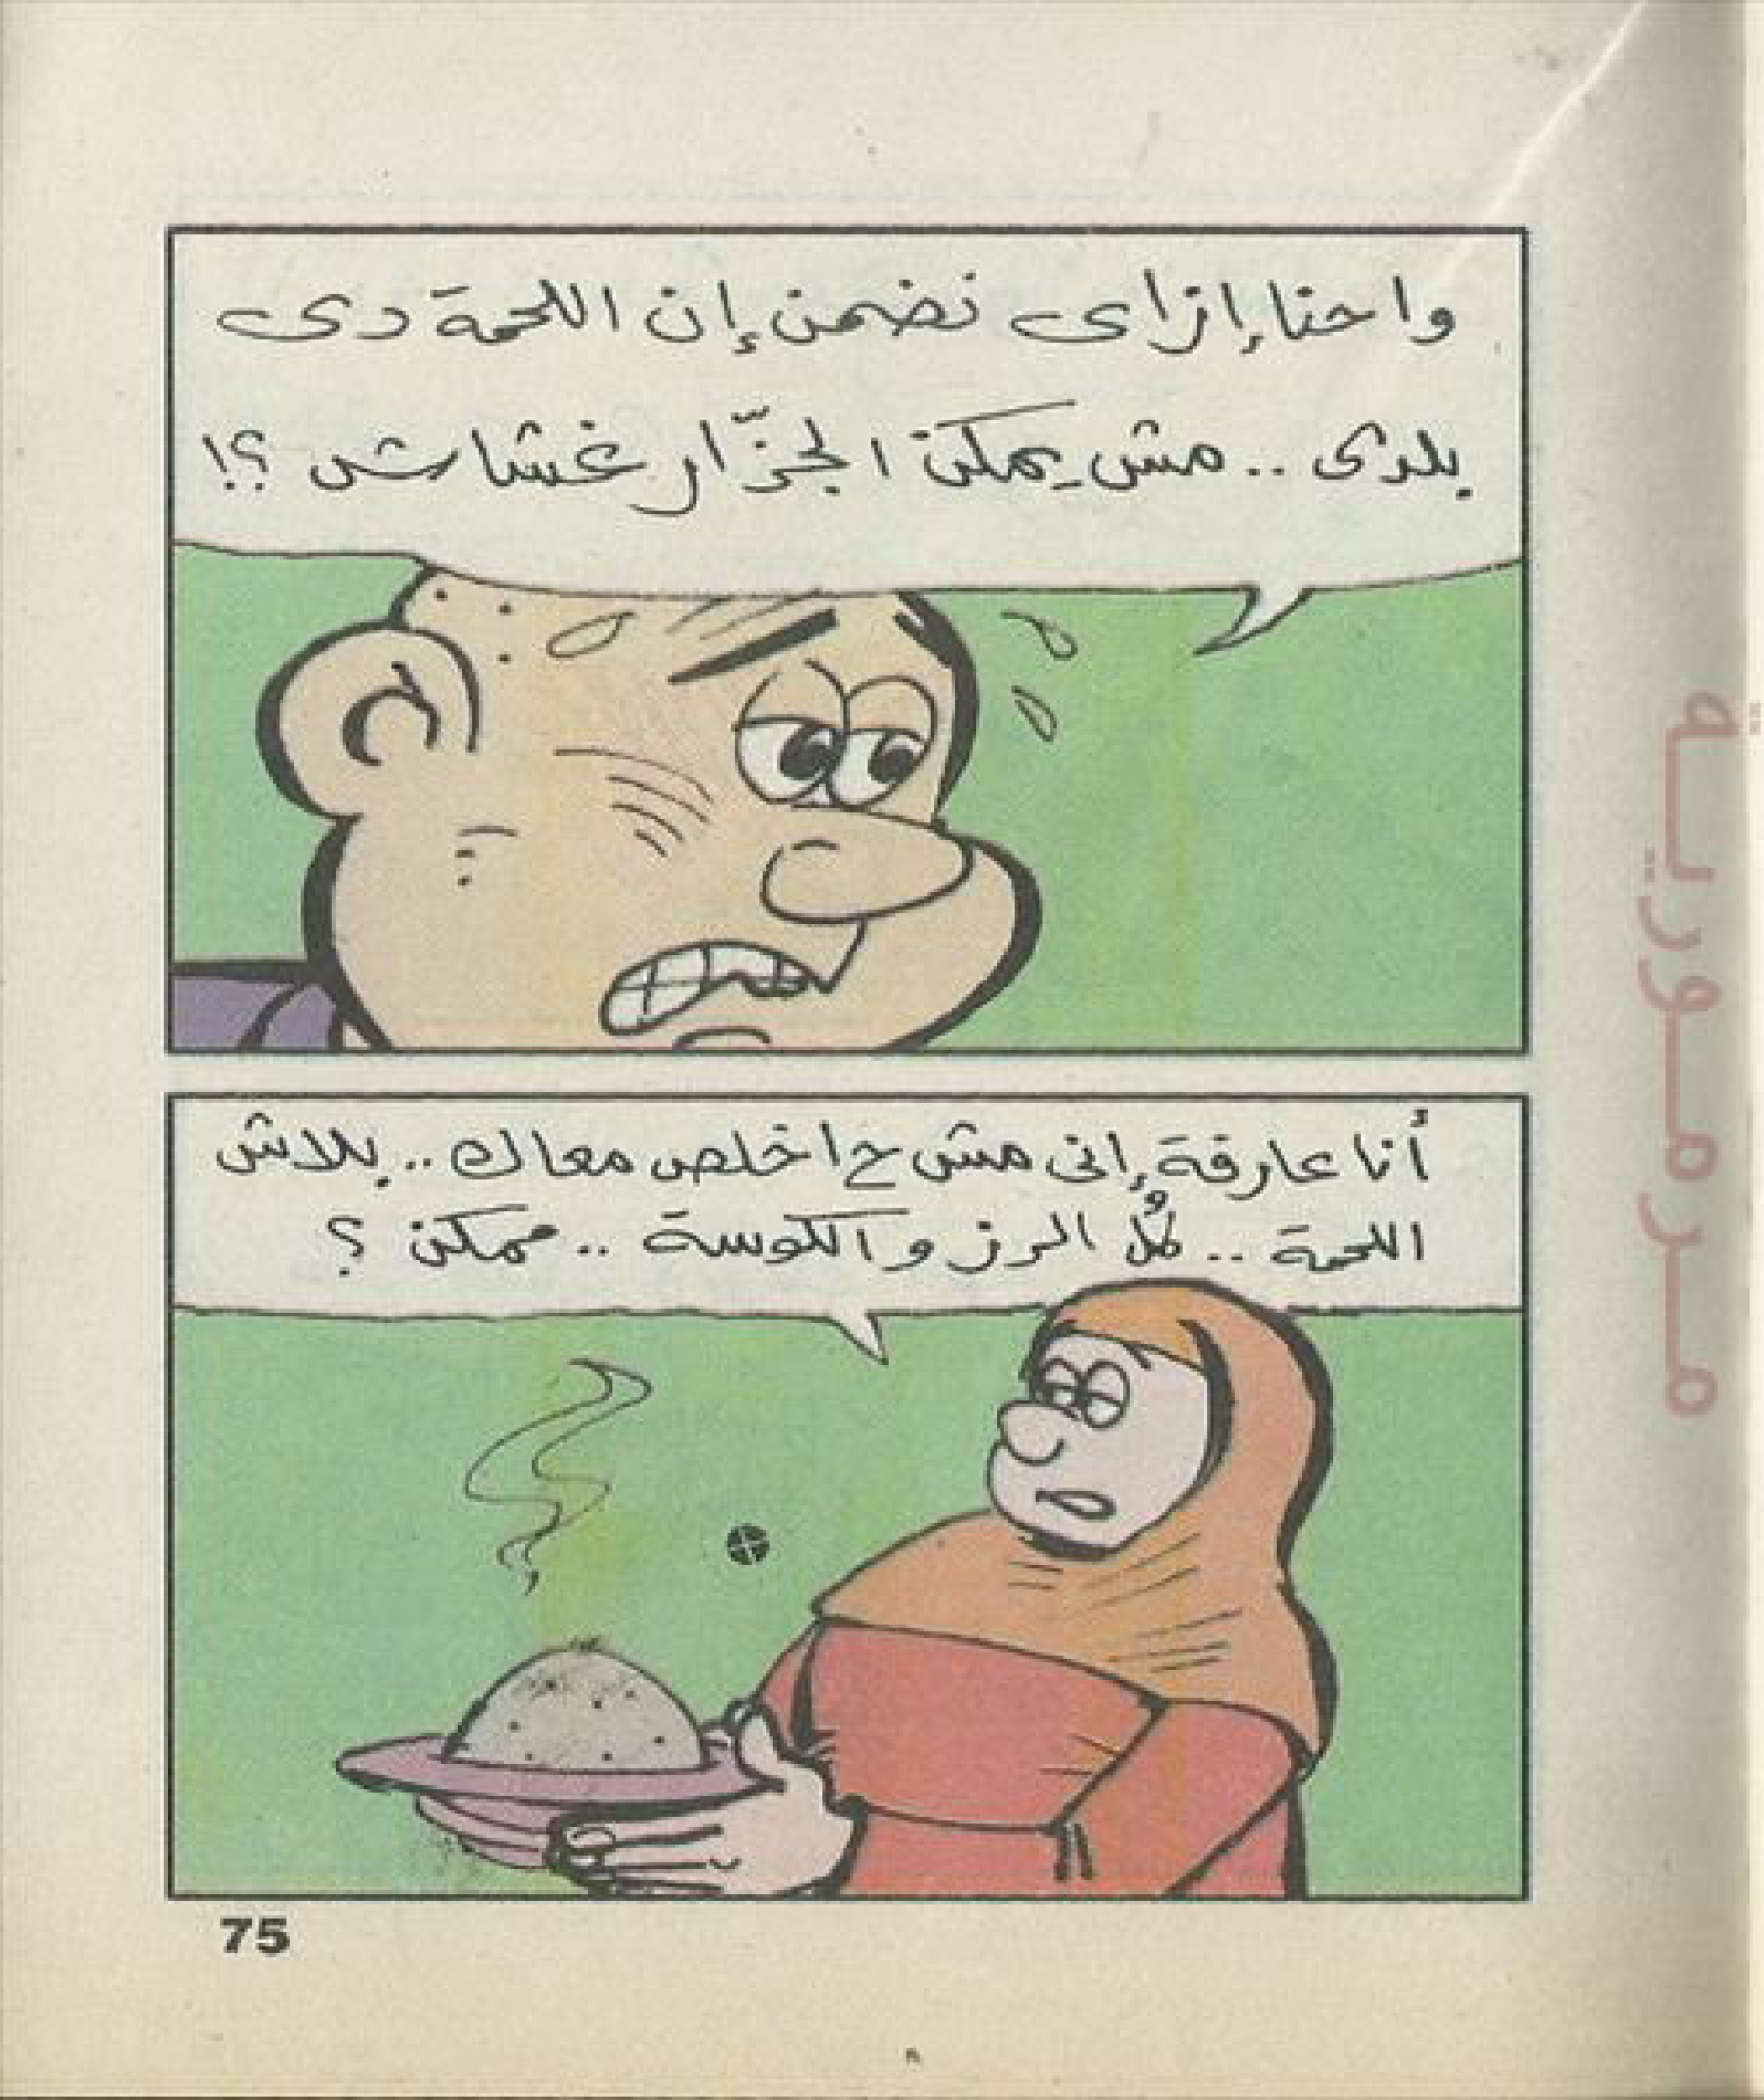 واحنا إزاى نضمن إن اللحمة دى
بلدى .. مش يمكن الجزّار غشاش ؟!
أنا عارفة إنى مش ح اخلص معاك .. بلاش
اللحمة .. كُل الرز و الكوسة .. ممكن ؟
75
مرمورية